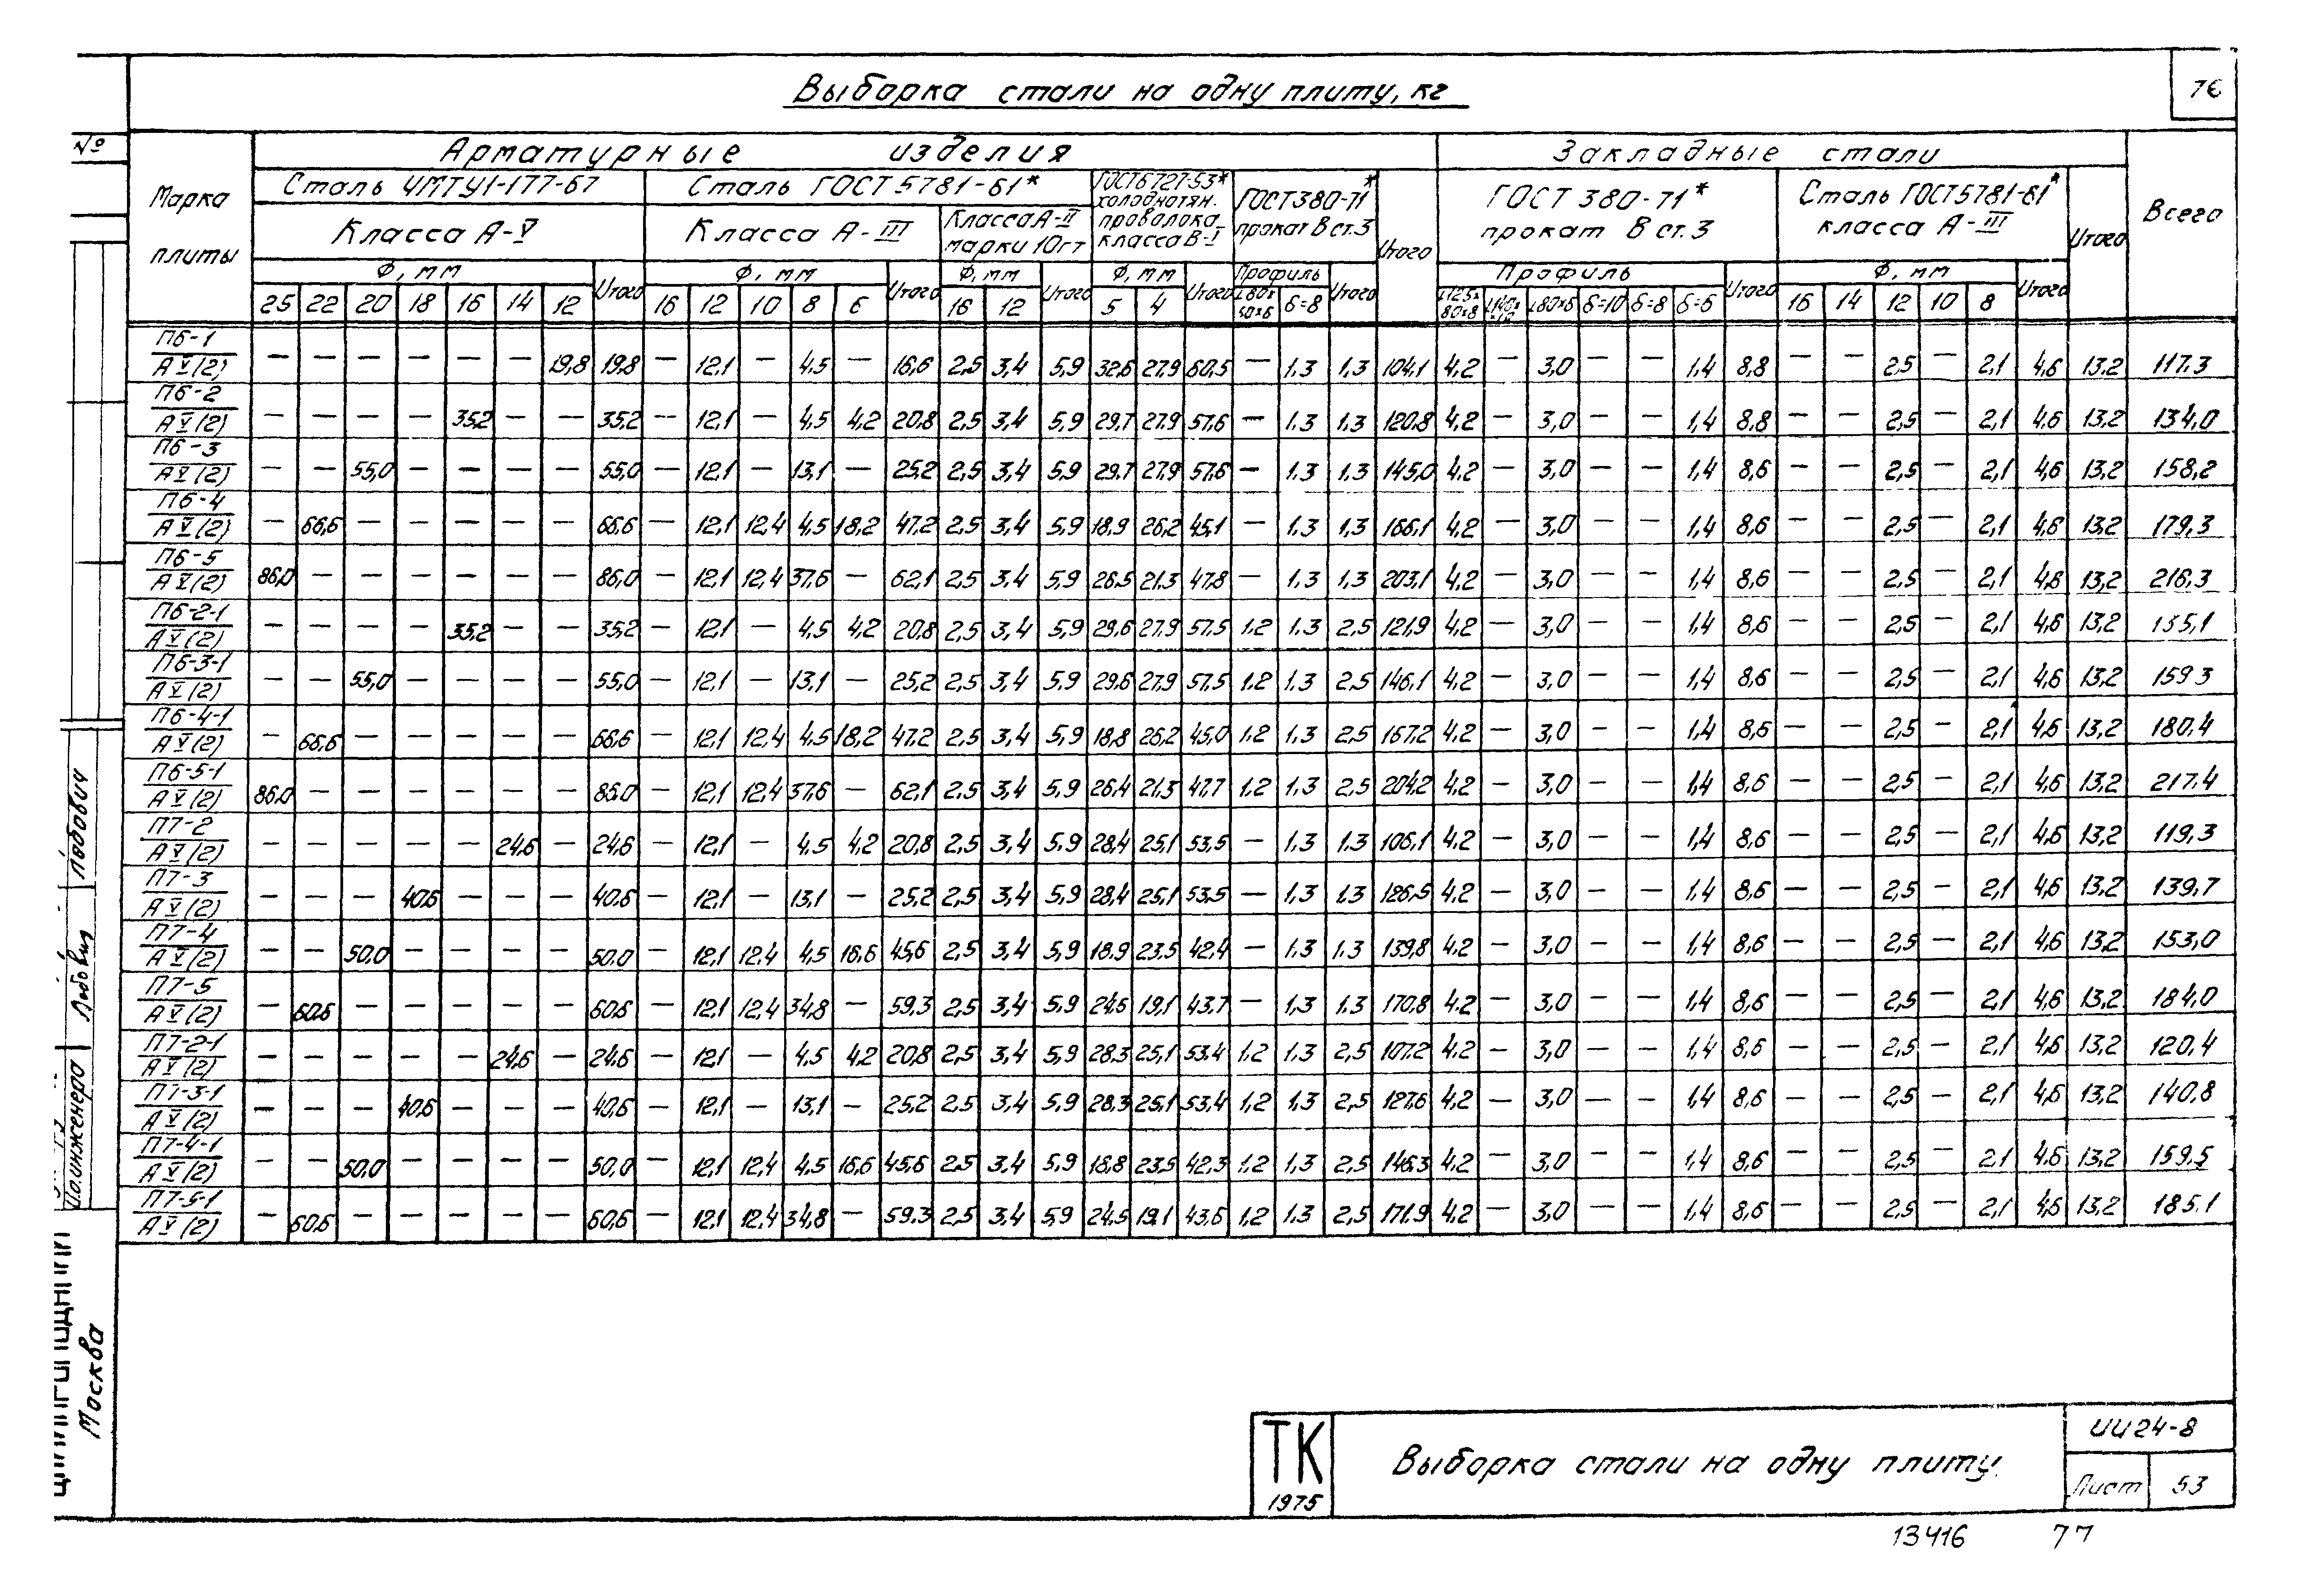 Выборка стали на одну плиту, кг
76
№
Марка плиты
Арматурные изделия
Закладные стали
Всего
Сталь ЧМТУ1-177-67
Сталь ГОСТ 5781-61*
ГОСТ 6727-53* холоднотян. проволока класса В-I
ГОСТ 380-71* прокат В ст.3
Итого
ГОСТ 380-71* прокат В ст.3
Сталь ГОСТ 5781-61* класса А-III
Итого
Класса А-V
Класса А-III
Класса А-II марки 10гт
Ф, мм Итого Ф, мм Итого Ф, мм Итого Ф, мм Итого Профиль Итого Профиль Итого Ф, мм Итого
25 22 20 18 16 14 12 16 12 10 8 6 16 12 5 4 ∟80×50×6 δ=8 ∟125×80×8 ∟80×6 δ=10 δ=8 δ=6 16 14 12 10 8
П6-1 АV(2) — — — — — — 19,8 19,8 — 12,1 — 4,5 — 16,6 2,5 3,4 5,9 32,6 27,9 60,5 — 1,3 1,3 104,1 4,2 — 3,0 — — 1,4 8,8 — — 2,5 — 2,1 4,6 13,2 117,3
П6-2 АV(2) — — — — 35,2 — — 35,2 — 12,1 — 4,5 4,2 20,8 2,5 3,4 5,9 29,7 27,9 57,6 — 1,3 1,3 120,8 4,2 — 3,0 — — 1,4 8,8 — — 2,5 — 2,1 4,6 13,2 134,0
П6-3 АV(2) — — 55,0 — — — — 55,0 — 12,1 — 13,1 — 25,2 2,5 3,4 5,9 29,7 27,9 57,6 — 1,3 1,3 145,0 4,2 — 3,0 — — 1,4 8,6 — — 2,5 — 2,1 4,6 13,2 158,2
П6-4 АV(2) — 66,6 — — — — — 66,6 — 12,1 12,4 4,5 18,2 47,2 2,5 3,4 5,9 18,9 26,2 45,1 — 1,3 1,3 166,1 4,2 — 3,0 — — 1,4 8,6 — — 2,5 — 2,1 4,6 13,2 179,3
П6-5 АV(2) 86,0 — — — — — — 86,0 — 12,1 12,4 37,6 — 62,1 2,5 3,4 5,9 26,5 21,3 47,8 — 1,3 1,3 203,1 4,2 — 3,0 — — 1,4 8,6 — — 2,5 — 2,1 4,6 13,2 216,3
П6-2-1 АV(2) — — — — 35,2 — — 35,2 — 12,1 — 4,5 4,2 20,8 2,5 3,4 5,9 29,6 27,9 57,5 1,2 1,3 2,5 121,9 4,2 — 3,0 — — 1,4 8,6 — — 2,5 — 2,1 4,6 13,2 135,1
П6-3-1 АV(2) — — 55,0 — — — — 55,0 — 12,1 — 13,1 — 25,2 2,5 3,4 5,9 29,6 27,9 57,5 1,2 1,3 2,5 146,1 4,2 — 3,0 — — 1,4 8,6 — — 2,5 — 2,1 4,6 13,2 159,3
П6-4-1 АV(2) — 66,6 — — — — — 66,6 — 12,1 12,4 4,5 18,2 47,2 2,5 3,4 5,9 18,8 26,2 45,0 1,2 1,3 2,5 167,2 4,2 — 3,0 — — 1,4 8,6 — — 2,5 — 2,1 4,6 13,2 180,4
П6-5-1 АV(2) 86,0 — — — — — — 86,0 — 12,1 12,4 37,6 — 62,1 2,5 3,4 5,9 26,4 21,3 47,7 1,2 1,3 2,5 204,2 4,2 — 3,0 — — 1,4 8,6 — — 2,5 — 2,1 4,6 13,2 217,4
П7-2 АV(2) — — — — — 24,6 — 24,6 — 12,1 — 4,5 4,2 20,8 2,5 3,4 5,9 28,4 25,1 53,5 — 1,3 1,3 106,1 4,2 — 3,0 — — 1,4 8,6 — — 2,5 — 2,1 4,6 13,2 119,3
П7-3 АV(2) — — — 40,6 — — — 40,6 — 12,1 — 13,1 — 25,2 2,5 3,4 5,9 28,4 25,1 53,5 — 1,3 1,3 126,5 4,2 — 3,0 — — 1,4 8,6 — — 2,5 — 2,1 4,6 13,2 139,7
П7-4 АV(2) — — 50,0 — — — — 50,0 — 12,1 12,4 4,5 16,6 45,6 2,5 3,4 5,9 18,9 23,5 42,4 — 1,3 1,3 139,8 4,2 — 3,0 — — 1,4 8,6 — — 2,5 — 2,1 4,6 13,2 153,0
П7-5 АV(2) — 60,6 — — — — — 60,6 — 12,1 12,4 34,8 — 59,3 2,5 3,4 5,9 24,6 19,1 43,7 — 1,3 1,3 170,8 4,2 — 3,0 — — 1,4 8,6 — — 2,5 — 2,1 4,6 13,2 184,0
П7-2-1 АV(2) — — — — — 24,6 — 24,6 — 12,1 — 4,5 4,2 20,8 2,5 3,4 5,9 28,3 25,1 53,4 1,2 1,3 2,5 107,2 4,2 — 3,0 — — 1,4 8,6 — — 2,5 — 2,1 4,6 13,2 120,4
П7-3-1 АV(2) — — — 40,6 — — — 40,6 — 12,1 — 13,1 — 25,2 2,5 3,4 5,9 28,3 25,1 53,4 1,2 1,3 2,5 127,6 4,2 — 3,0 — — 1,4 8,6 — — 2,5 — 2,1 4,6 13,2 140,8
П7-4-1 АV(2) — — 50,0 — — — — 50,0 — 12,1 12,4 4,5 16,6 45,6 2,5 3,4 5,9 18,8 23,5 42,3 1,2 1,3 2,5 146,3 4,2 — 3,0 — — 1,4 8,6 — — 2,5 — 2,1 4,6 13,2 159,5
П7-5-1 АV(2) — 60,6 — — — — — 60,6 — 12,1 12,4 34,8 — 59,3 2,5 3,4 5,9 24,5 19,1 43,6 1,2 1,3 2,5 171,9 4,2 — 3,0 — — 1,4 8,6 — — 2,5 — 2,1 4,6 13,2 185,1
Москва
ТК
1975
Выборка стали на одну плиту.
ИИ24-8
Лист 53
13416 77